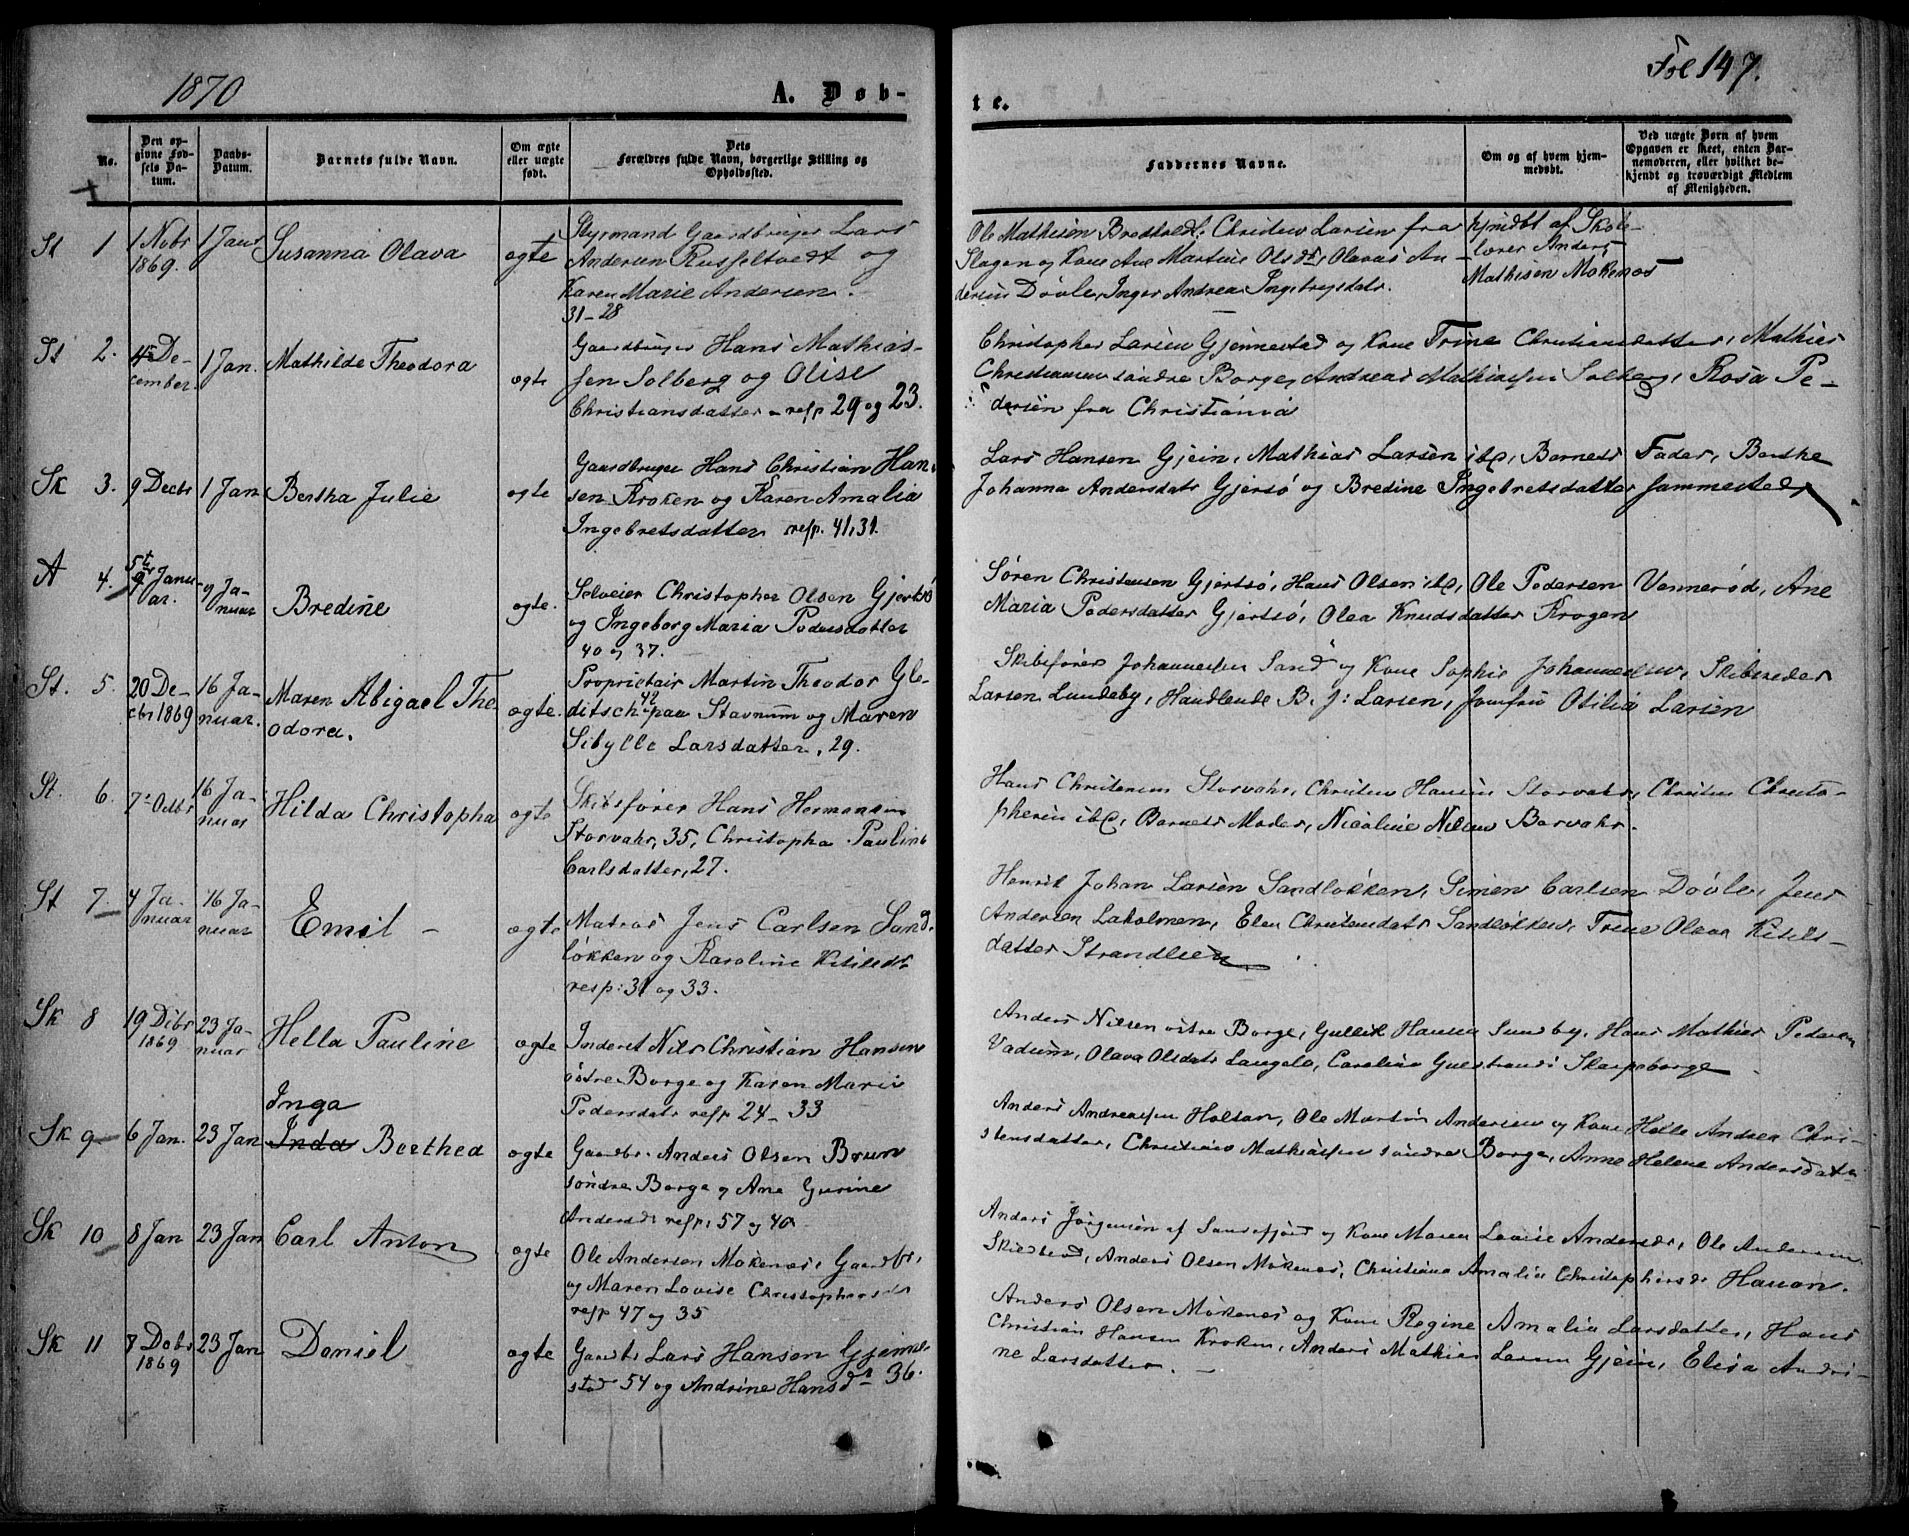 1870
A. Døb-
te.
Fol 147.
No.
Den op-
givne Fød-
sels Da-
tum.
Daabs-
Datum.
Barnets fulde Navn.
Om ægte
eller uægte
født.
Dets
Forældres fulde Navn, borgerlige Stilling og
Opholdssted.
Faddernes Navne.
Om og af hvem hjem-
medøbt.
Ved uægte Born af hvem
Opgaven er skeet, enten Bar-
nemoderen, eller hvilket be-
kjendt og troværdigt Medlem
af Menigheden.
St 1 1 Nobr 1869. 1 Januar Susanna Olava ogte
Styrmand Gaardbruger Lars
Andersen Russeltvedt og
Karen Marie Andersen.
31-28
Ole Mathisen Bredholdt, Christen Larsen fra
Slagen og Kone Ane Martine Olsdt, Olavus An-
dersen Døvle, Inger Andrea Ingebrgsdatr.
hjmdbt af Skole-
lærer Anders
Mathisen Mokenæs
St 2. 4de De-
cember 1 Jan. Mathilde Theodora ogte
Gaardbruger Hans Mathias-
sen Solberg og Olise
Christiansdatter - resp 29 og 23.
Christopher Larsen Gjennestad og Kone Trine Christiansdatter, Mathias
Christiansen søndre Borge, Andreas Mathiassen Solberg, Rosa Pe-
dersen fra Christiania
Sk 3. 9 Decbr 1 Jan Bertha Julie ogte
Gaardbruger Hans Christian Han-
sen Kroken og Karen Amalia
Ingebretsdatter resp. 41, 31.
Lars Hansen Gjein, Mathias Larsen ibd, Barnets Fader, Berthe
Johanna Andersdatr Gjersø og Bredine Ingebretsdatter sammested
A 4. 5te Janu-
ar. 9 Ja-
nuar Bredine ogte.
Selveier Christopher Olsen Gjertsø
og Ingeborg Maria Pedersdatter
40 og 37.
Søren Christensen Gjertsø, Hans Olsen ibd, Ole Pedersen Vennerød, Ane
Maria Pedersdatter Gjertsø, Olea Knudsdatter Krogen
St. 5. 20 De-
cbr 1869 16 Ja-
nuar. Maren Abigael The-
odora. ogte.
Proprietair Martin Theodor Gle-
ditsch 42 paa Stavnum og Maren
Sibylle Larsdatter, 29.
Skibsfører Johannessen Sand og Kone Sophie Johannessen, Skibsreder
Larsen Lundeby, Handlende B. J: Larsen, Jomfru Otilia Larsen
St. 6. 7de Octbr 16 Ja-
nuar Hilda Christopha ogte
Skibsfører Hans Hermansen
Storvahr, 35, Christopha Pauline
Carlsdatter, 27.
Hans Christensen Storvahr, Christen Hansen Storvahr, Christen Christo-
phersen ibd, Barnets Moder, Nicoline Nilsen Barvahr.
St 7. 4 Ja-
nuar 16 Ja-
nuar Emil - ogte
Matros Jens Carlsen Sand-
løkken og Karoline Kitilsdr
resp: 31 og 33.
Henrik Johan Larsen Sandløkken, Simen Carlsen Døvle, Jens
Andersen Lakolmen, Elen Christensdatr Sandløkken, Trine Olava Kitils-
datter Strandlien
Sk 8 19 Dcbr
1869 23 Ja-
nuar Hella Pauline ogte
Inderst Nils Christian Hansen
østre Borge og Karen Marie
Pedersdatr resp 24 - 33
Anders Nilsen østre Borge, Gullik Hansen Sundby, Hans Mathias Pedersen
Vadum, Olava Olsdatr Langelo, Caroline Skarpeborge
Sk 9 6 Jan. 23 Jan Inga
Inda Berthea ogte
Gaardbr. Anders Olsen Brun
søndre Borge og Ane Gurine
Andersdr resp: 57 og 40.
Anders Andreassen Holtan, Ole Martin Andersen og Kone Helle Andrea Chri-
stensdatter, Christian Mathiassen søndre Borge, Anne Helene Andersdatr
Sk 10 8 Jan 23 Jan Carl Anton ogte
Ole Andersen Mokenæs, Gaardbr,
og Maren Lovise Christophersdr
resp 47 og 35
Anders Jørgensen af Sandefjord og Kone Maren Lovise Andersdr, Ole Andersen
Anders Olsen Mokenæs, Christiane Amalia Christophersdr Hauan.
Sk 11 8 Dcbr
1869 23 Jan Daniel ogte
Gaardbr Lars Hansen Gjenne-
stad 54 og Andrine Hansdr 36.
Anders Olsen Mokenes og Kone Regine Amalia Larsdatter, Hans
Christian Hansen Kroken, Anders Mathias Larsen Gjein, Elisa Andri-
ne Larsdatter. -